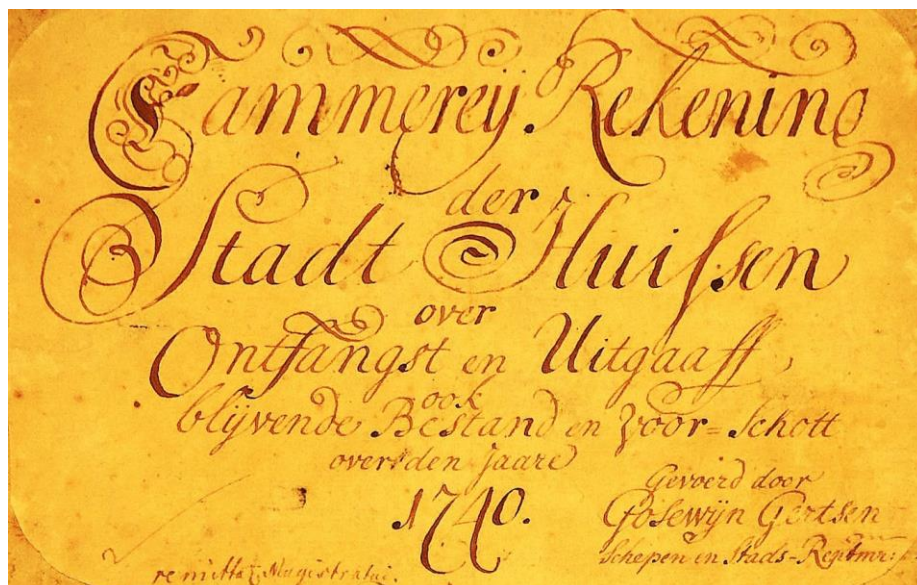 Cammereÿ Rekening
der
Stadt Huisſen
over
Ontfangst en Uitgaaff,
ook
blÿvende Bestand en Voor=Schott
over den Jaare
1740.
Gevoerd door
Gosewÿn Gertsen
Schepen en Stads-Rentmr:
remittat Magistratui.